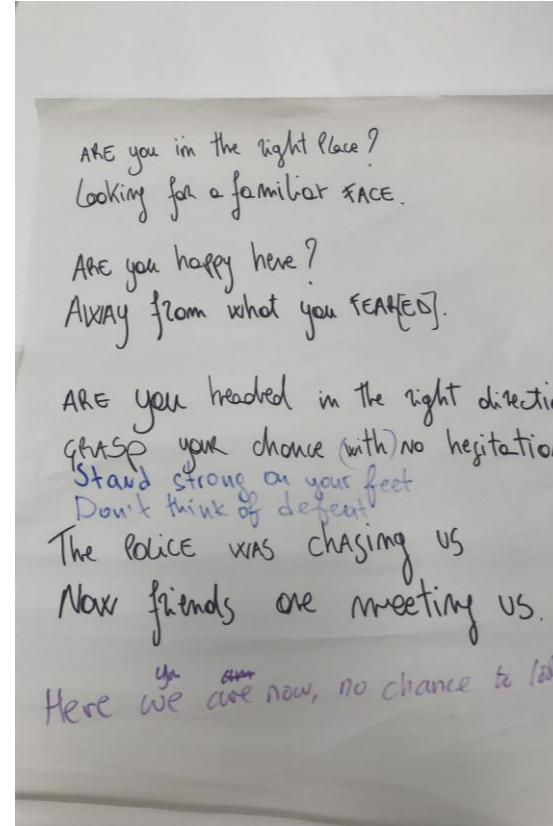 ARE you in the right Place?
Looking for a familiar FACE.
ARE you happy here?
AWAY from what you FEAR[ED].
ARE you headed in the right directi
GRASP your chance (with) NO hesitatio
Stand strong on your feet
Don't think of defeat
The POLICE WAS chASing US
Now friends are meeting US.
you
Here we are now, no chance to